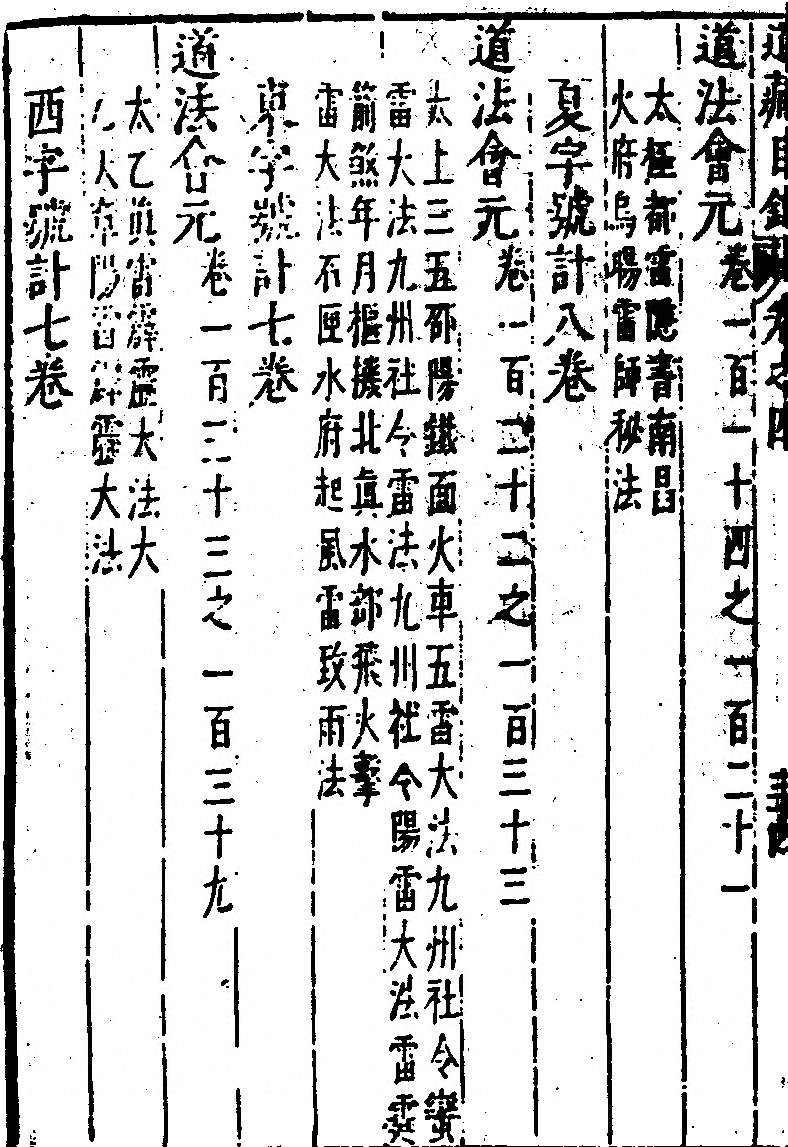 道藏目錄 卷之四
道法會元卷一百一十四之一百二十一
太極都雷隱書南昌
火府烏暘雷師秘法
夏字號計八卷
道法會元卷一百二十二之一百三十三
太上三五邵陽鐵面火車五雷大法九州社令蠻
雷大法九州社令雷法九州社令陽雷大法雷霆
箭煞年月樞機北真水部飛火擊
雷大法石匣水府起風雷致雨法
東字號計七卷
道法會元卷一百三十三之一百三十九
太乙真雷霹靂大法大
陽雷霹靂大法
西字號計七卷